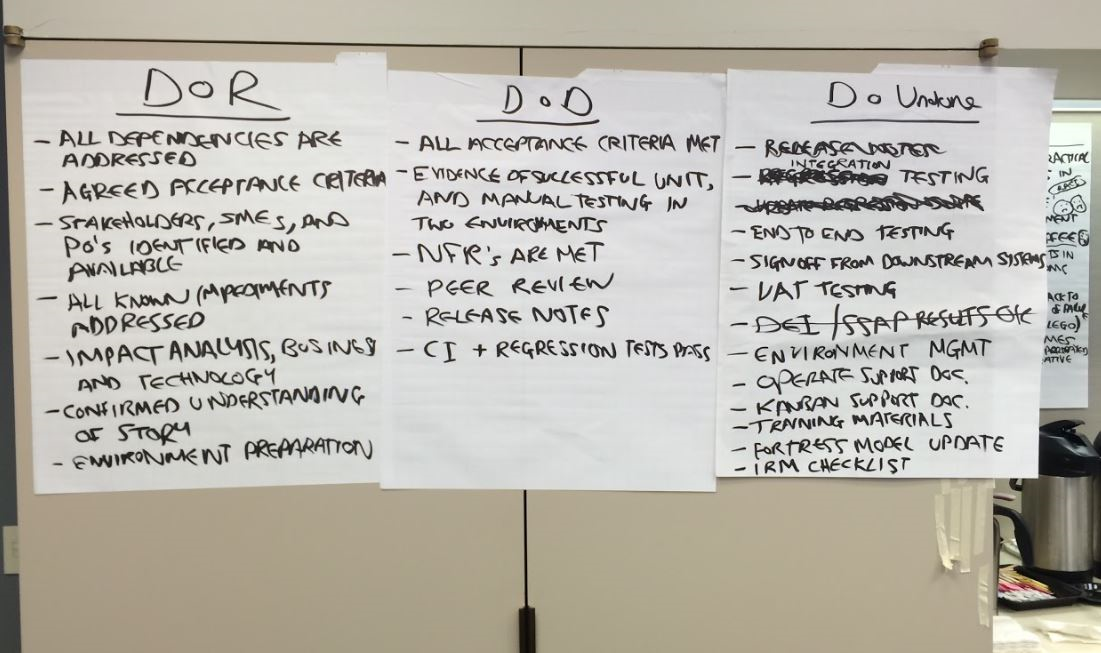 DoR
- ALL DEPENDENCIES ARE
ADDRESSED
- AGREED ACCEPTANCE CRITERIA
- STAKEHOLDERS, SMEs, AND
PO's IDENTIFIED AND
AVAILABLE
- ALL KNOWN IMPEDIMENTS
ADDRESSED
- IMPACT ANALYSIS, BUSINESS
AND TECHNOLOGY
- CONFIRMED UNDERSTANDING
OF STORY
- ENVIRONMENT PREPARATION
DoD
- ALL ACCEPTANCE CRITERIA MET
- EVIDENCE OF SUCCESSFUL UNIT,
AND MANUAL TESTING IN
TWO ENVIRONMENTS
- NFR's ARE MET
- PEER REVIEW
- RELEASE NOTES
- CI + REGRESSION TESTS PASS
Do Undone
INTEGRATION
- TESTING
- END TO END TESTING
- SIGN OFF FROM DOWNSTREAM SYSTEMS
- UAT TESTING
- RESULTS ETC
- ENVIRONMENT MGMT
- OPERATE SUPPORT DOC.
- KANBAN SUPPORT DOC.
- TRAINING MATERIALS
- FORTRESS MODEL UPDATE
- IRM CHECKLIST